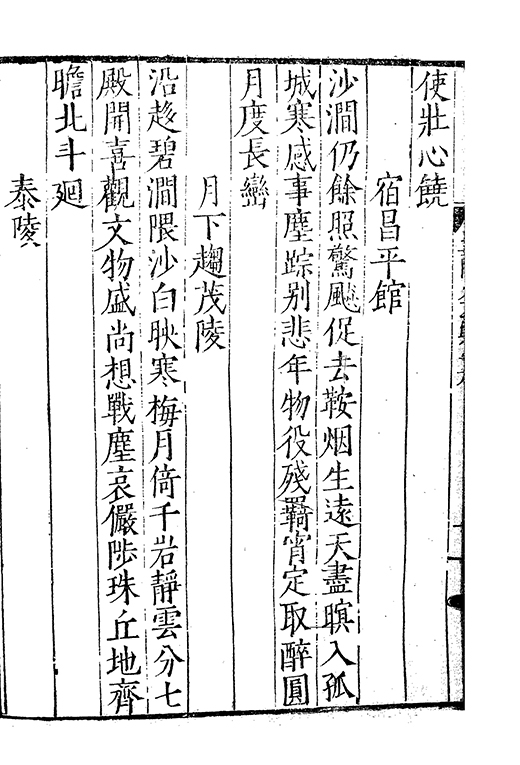 使壯心饒
宿昌平館
沙澗仍餘照驚颷促去鞍烟生遠天盡暝入孤
城寒感事塵踪别悲年物役殘羇宵定取醉圓
月度長巒
月下趨茂陵
沿趁碧澗隈沙白映寒梅月倚千岩靜雲分七
殿開喜觀文物盛尚想戰塵哀儼陟珠丘地齊
瞻北斗廻
泰陵